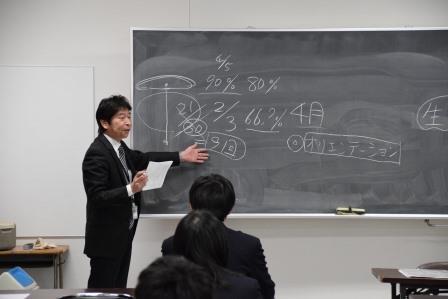 4/5
90% 80%
21/30 2/3 66.?% 4月
= 9回
◎ オリエンテーション
生